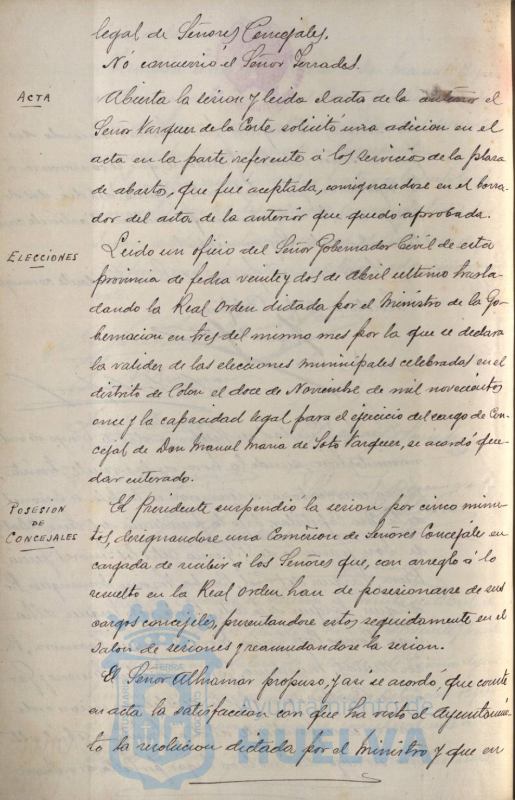 legal de Señores Concejales.
Nó concurrió el Señor Terrades.
ACTA
Abierta la sesion y leido el acta de la anterior el
Señor Vazquez de la Corte solicitó una adicion en el
acta en la parte referente á los servicios de la plaza
de abastos, que fué aceptada, consignandose en el borra-
dor del acta de la anterior que quedó aprobada.
ELECCIONES
Leido un oficio del Señor Gobernador Civil de esta
provincia de fecha veinte y dos de Abril ultimo trasla-
dando la Real Orden dictada por el Ministro de la Go-
bernacion en tres del mismo mes por la que se declara
la validez de las elecciones municipales celebradas en el
distrito de Colon el doce de Noviembre de mil novecientos
once y la capacidad legal para el ejercicio del cargo de Con-
cejal de Don Manuel Maria de Soto Vazquez, se acordó que-
dar enterado.
POSESION
DE
CONCEJALES
El Presidente suspendió la sesion por cinco minu-
tos, designandose una Comision de Señores Concejales en
cargada de recibir á los Señores que, con arreglo á lo
resuelto en la Real Orden han de posesionarse de sus
cargos concejiles, presentandose estos seguidamente en el
salon de sesiones y reanudandose la sesion.
El Señor Alhamar propuso, y asi se acordó, que conste
en acta la satisfaccion con que ha visto el Ayuntamien-
to la resolucion dictada por el Ministro y que en
Ayuntamiento de
HUELVA